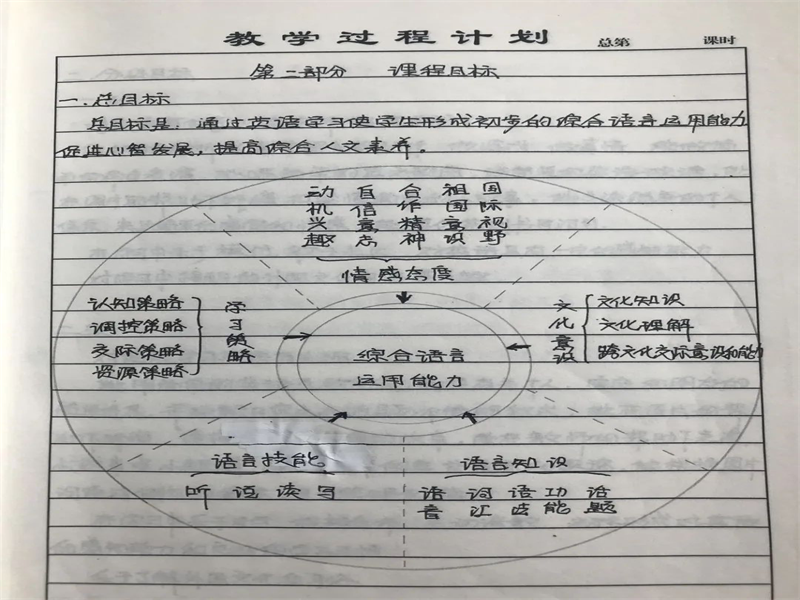 教学过程计划
总第 课时
第二部分 课程目标
一.总目标
总目标是:通过英语学习使学生形成初步的综合语言运用能力
促进心智发展,提高综合人文素养。
动 自 合 祖 国
机 信 作 国 际
兴 意 精 意 视
趣 志 神 识 野
情感态度
认知策略
调控策略
交际策略
资源策略
学习策略
文化意识
文化知识
文化理解
跨文化交际意识和能力
综合语言
运用能力
语言技能
听 说 读 写
语言知识
语 词 语 功 话
音 汇 法 能 题